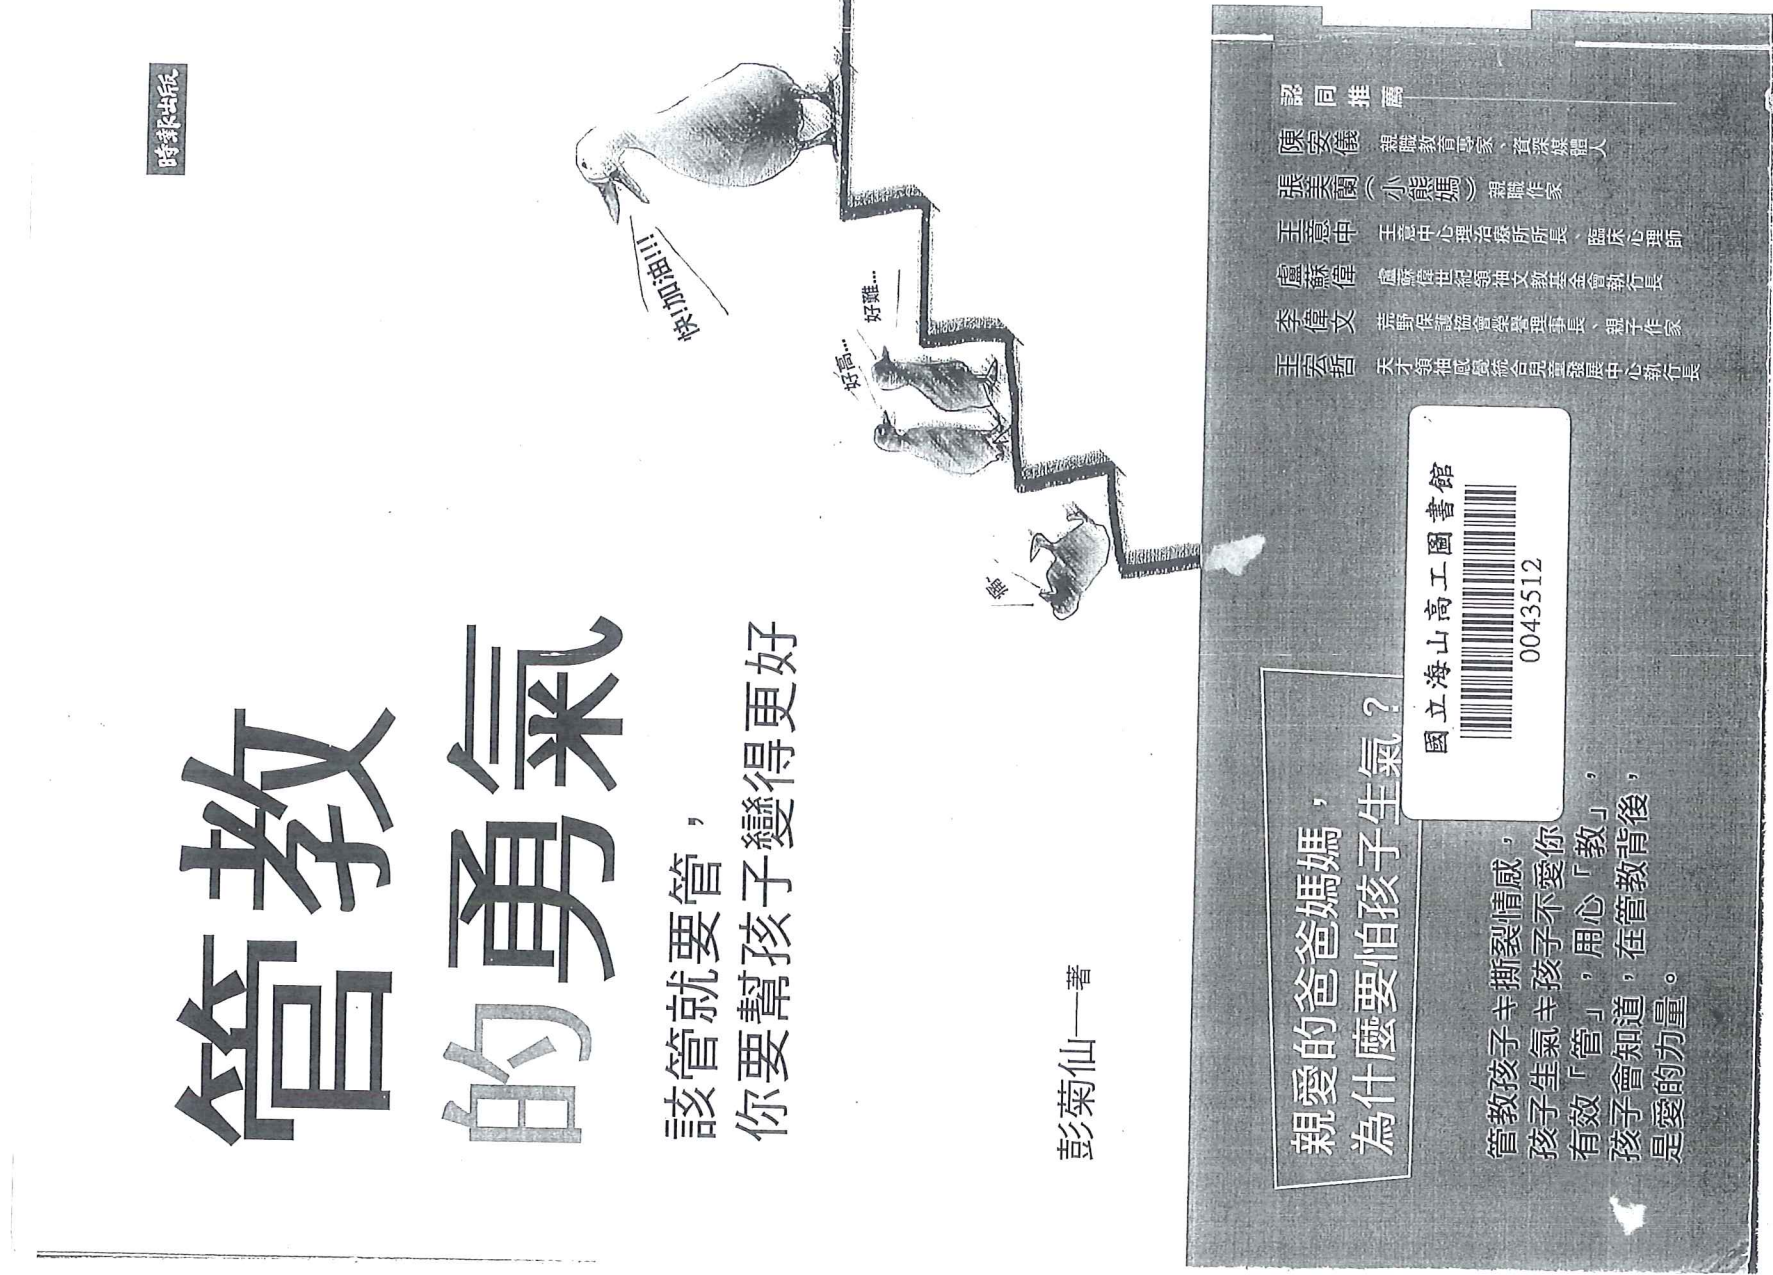 時報出版
管教
的勇氣
該管就要管，
你要幫孩子變得更好
快!加油!!!!
好難...
好高...
彭菊仙──著
認同推薦
陳安儀 親職教育專家、資深媒體人
張美蘭（小熊媽） 親職作家
王意中 王意中心理治療所所長、臨床心理師
盧蘇偉 盧蘇偉世紀領袖文教基金會執行長
李偉文 荒野保護協會榮譽理事長、親子作家
王宏哲 天才領袖感覺統合兒童發展中心執行長
親愛的爸爸媽媽，
為什麼要怕孩子生氣？
國立海山高工圖書館
0043512
管教孩子≠撕裂情感，
孩子生氣≠孩子不愛你
有效「管」，用心「教」，
孩子會知道，在管教背後，
是愛的力量。